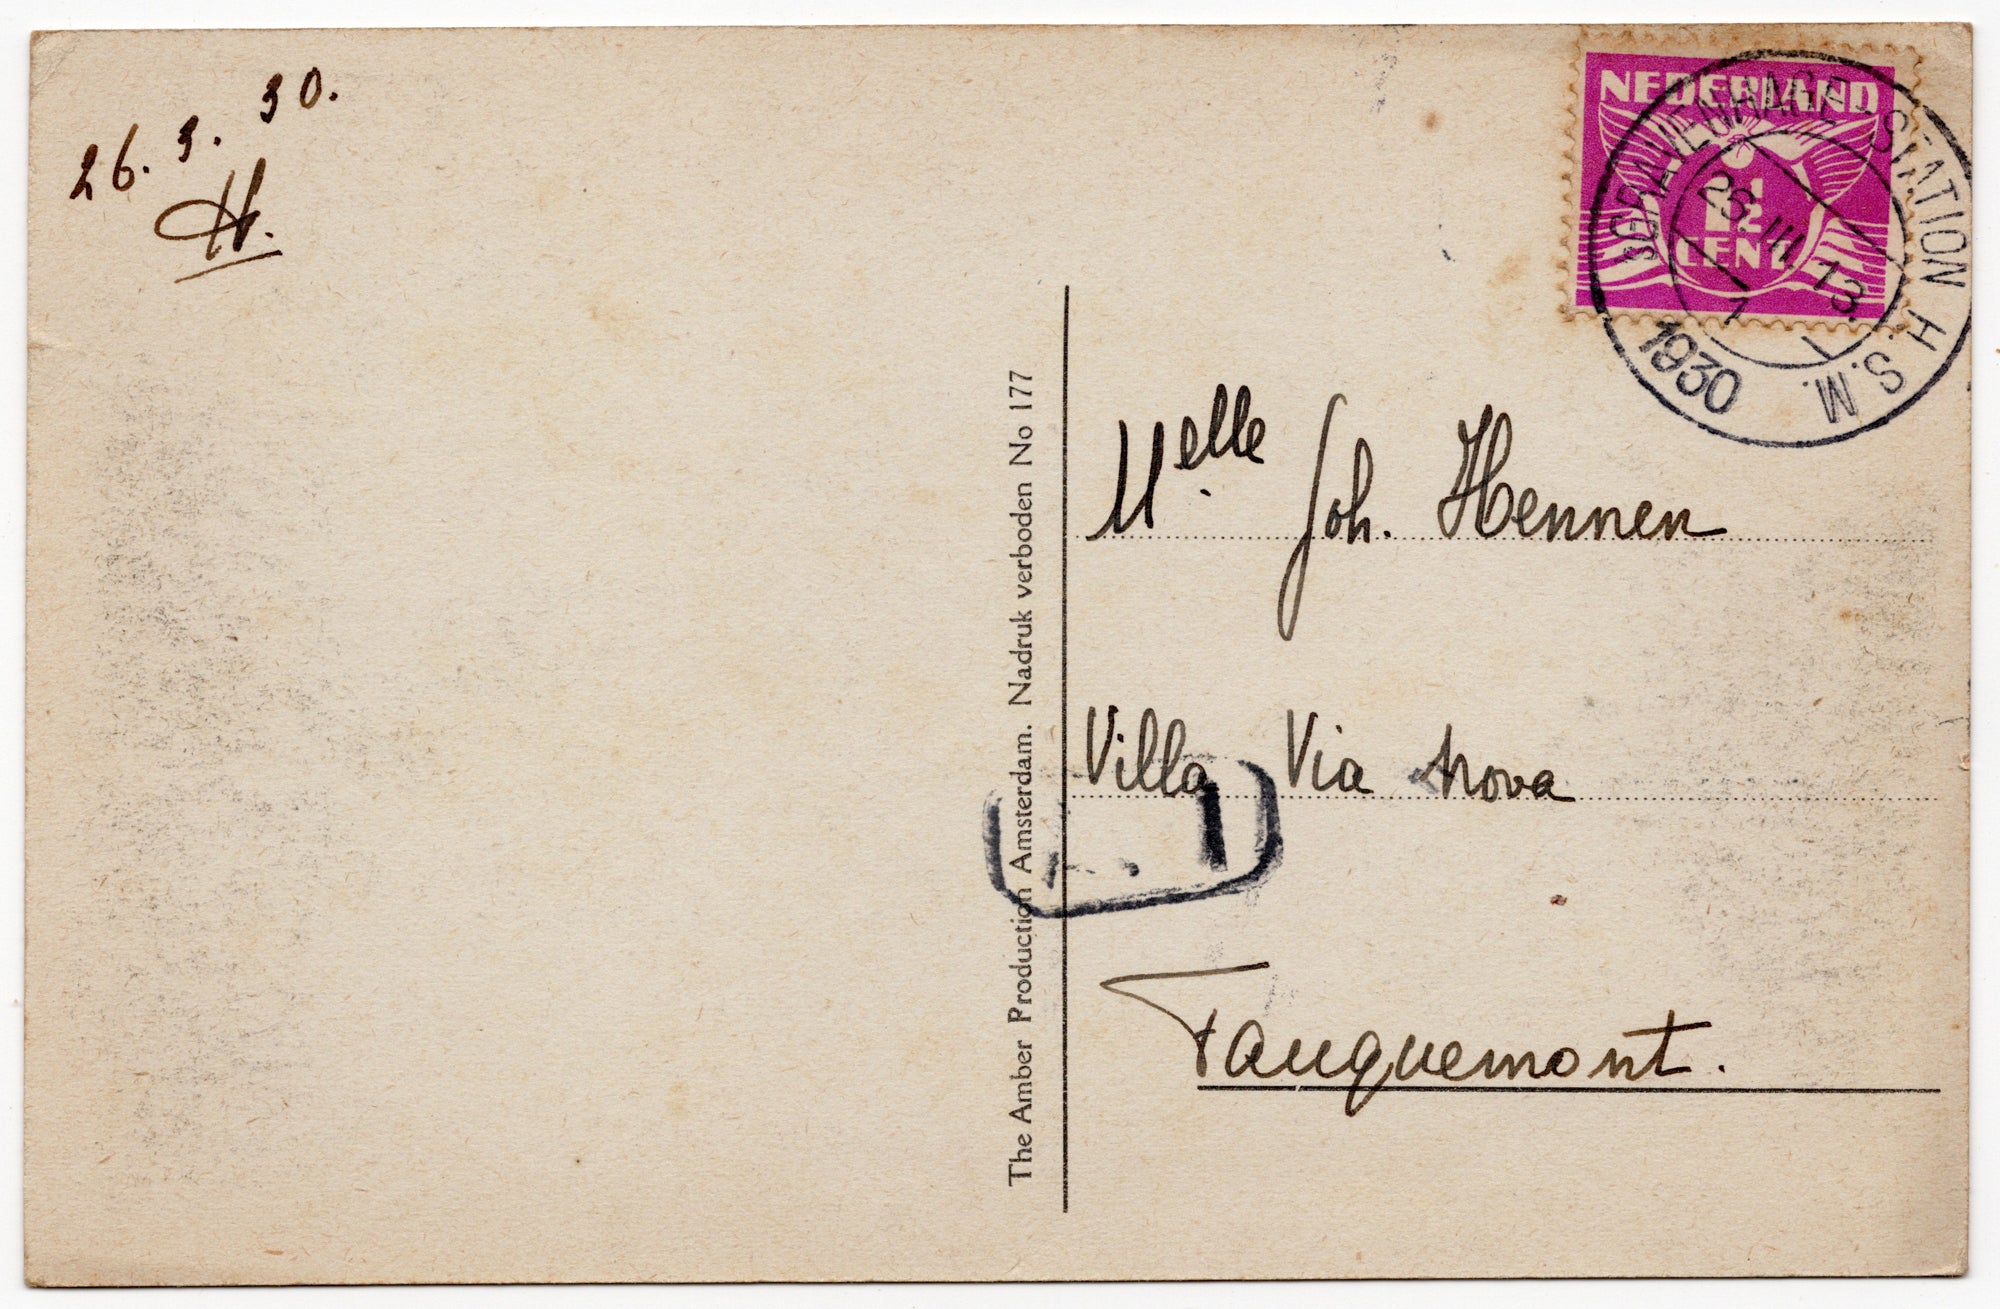 26. 3. 30.
H.
NEDERLAND
1½
CENT
'SGRAVENHAGE-STATION H.S.M.
26.III 13.
1930
Melle Joh. Hennen
Villa Via nova
Fauquemont.
The Amber Production Amsterdam. Nadruk verboden No 177